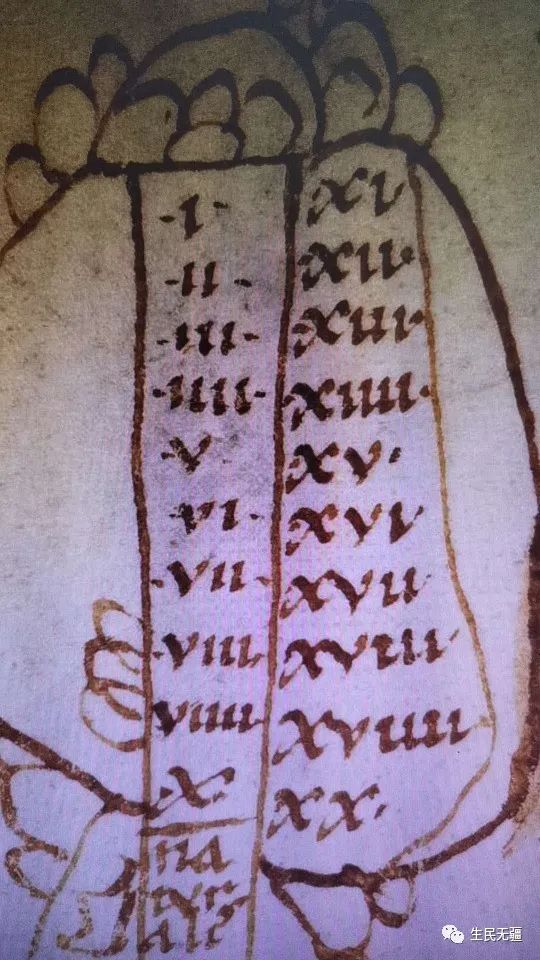 ·I·
·II·
·III·
·IIII·
·V·
·VI·
·VII·
·VIII·
VIIII·
·X·
·XI·
·XII·
·XIII·
·XIIII·
·XV·
·XVI
·XVII
·XVIII
XVIIII
XX·
生民无疆